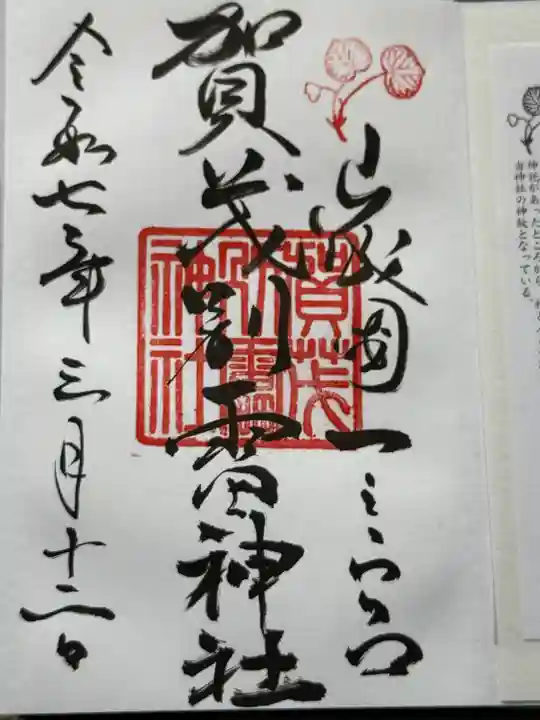 山城國一之宮
賀茂別雷神社
令和七年三月十二日
賀茂
別雷
神社
神紋があったところから、
当神社の神紋となっている。